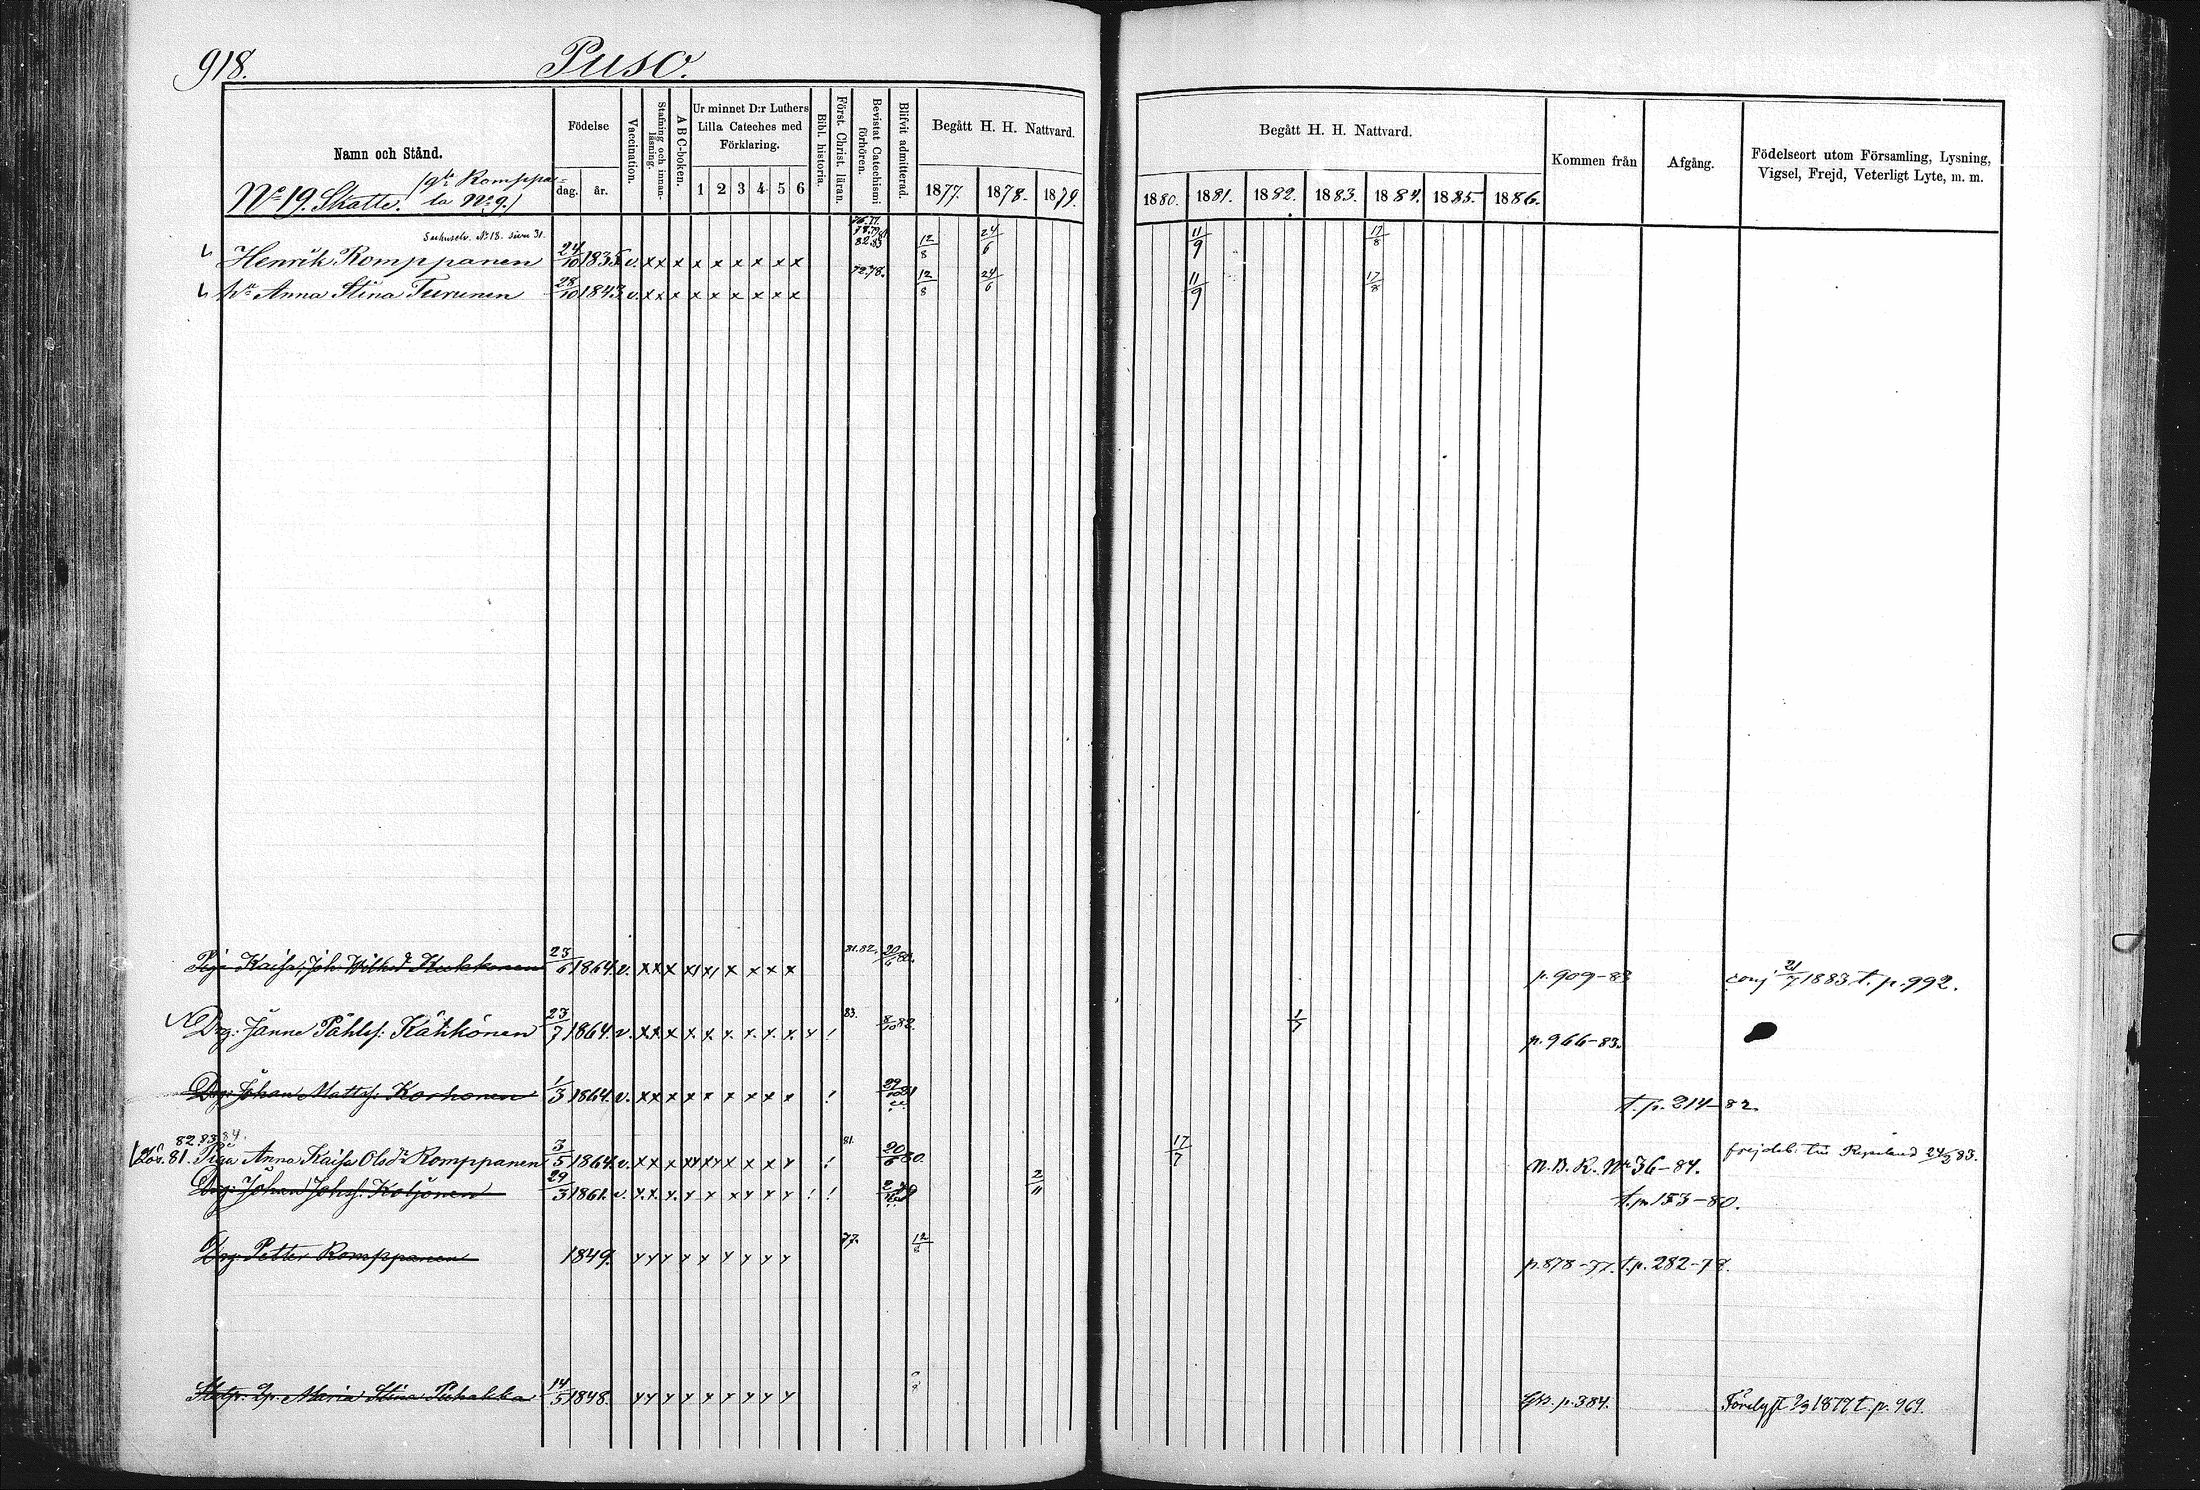 918.
Puso.
Namn och Stånd.
Födelse
dag.
år.
Vaccination.
Stafning och innanläsning.
A B C-boken.
Ur minnet D:r Luthers
Lilla Cateches med
Förklaring.
1 2 3 4 5 6
Bibl. historia.
Först. Christ. läran.
Bevistat Catechismi förhören.
Blifvit admitterad.
Begått H. H. Nattvard.
1877. 1878. 1879.
Begått H. H. Nattvard.
1880. 1881. 1882. 1883. 1884. 1885. 1886.
Kommen från
Afgång.
Födelseort utom Församling, Lysning,
Vigsel, Frejd, Veterligt Lyte, m. m.
No 19. Skatte. Romppa-
la No 9.)
No 18.
Henrik Romppanen 24/10 1835 v. x x x x x x x x x 12/8 24/6 11/9 17/8
Anna Stina Turunen 28/10 1843 v. x x x x x x x x x 72.78. 12/8 24/6 11/9 17/8
Kaisa Joh. Kukkonen 23/6 1864 v. x x x x x x x x x 81.82. 20/6 p. 909-83 conj. 21/7 1883 t. p. 992.
Drg: Janne Påhlss: Kähkönen 23/7 1864 v. x x x x x x x x x x ! 83. 8/10 82. 1/7 p. 966-83.
Drg: Johan Mattss: Korhonen 1/3 1864 v. x x x x x x x x x ! t. p. 214-82.
82.83.84.
81. Piga Anna Kaisa Olsdr Romppanen 3/5 1864 v. x x x x x x x x x ! 81. 20/6 80. 17/7 N.B.K. No 36-84. frejdeb. 83.
Drg: Johan Johss: Koljonen 29/3 1861 v. x x x x x x x x x ! ! 2/11 t. p. 153-80.
Drg Petter Romppanen 1849. x x x x x x x x x 77. 12/8 p. 878-77. t. p. 282-78.
Maria Stina Puhakka 14/5 1848. x x x x x x x x x p. 384. 1877 t. p. 969.